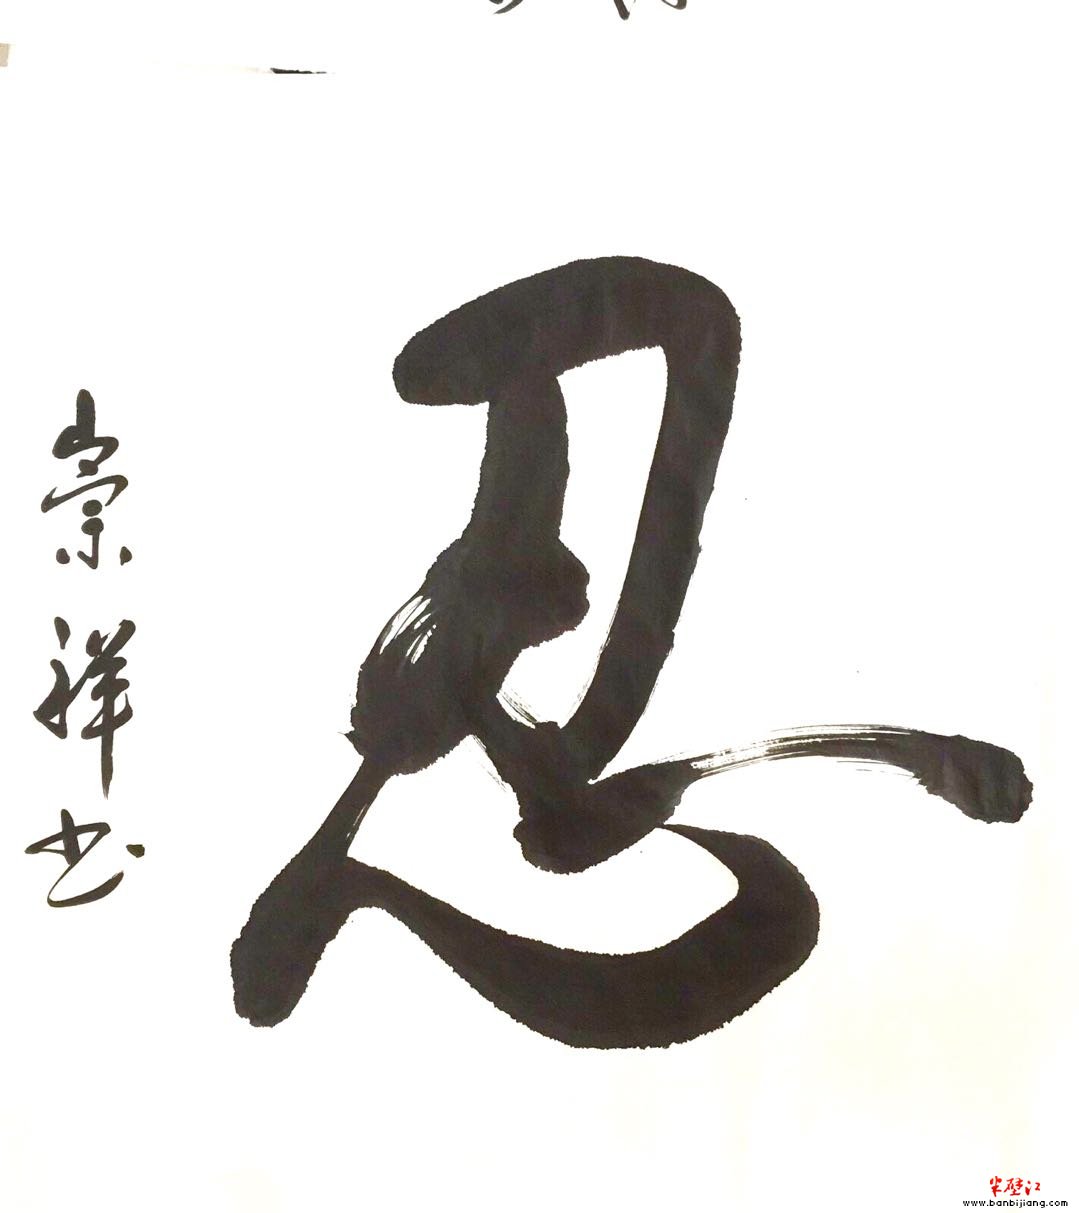 忍
崇祥书
半壁江
www.banbijiang.com